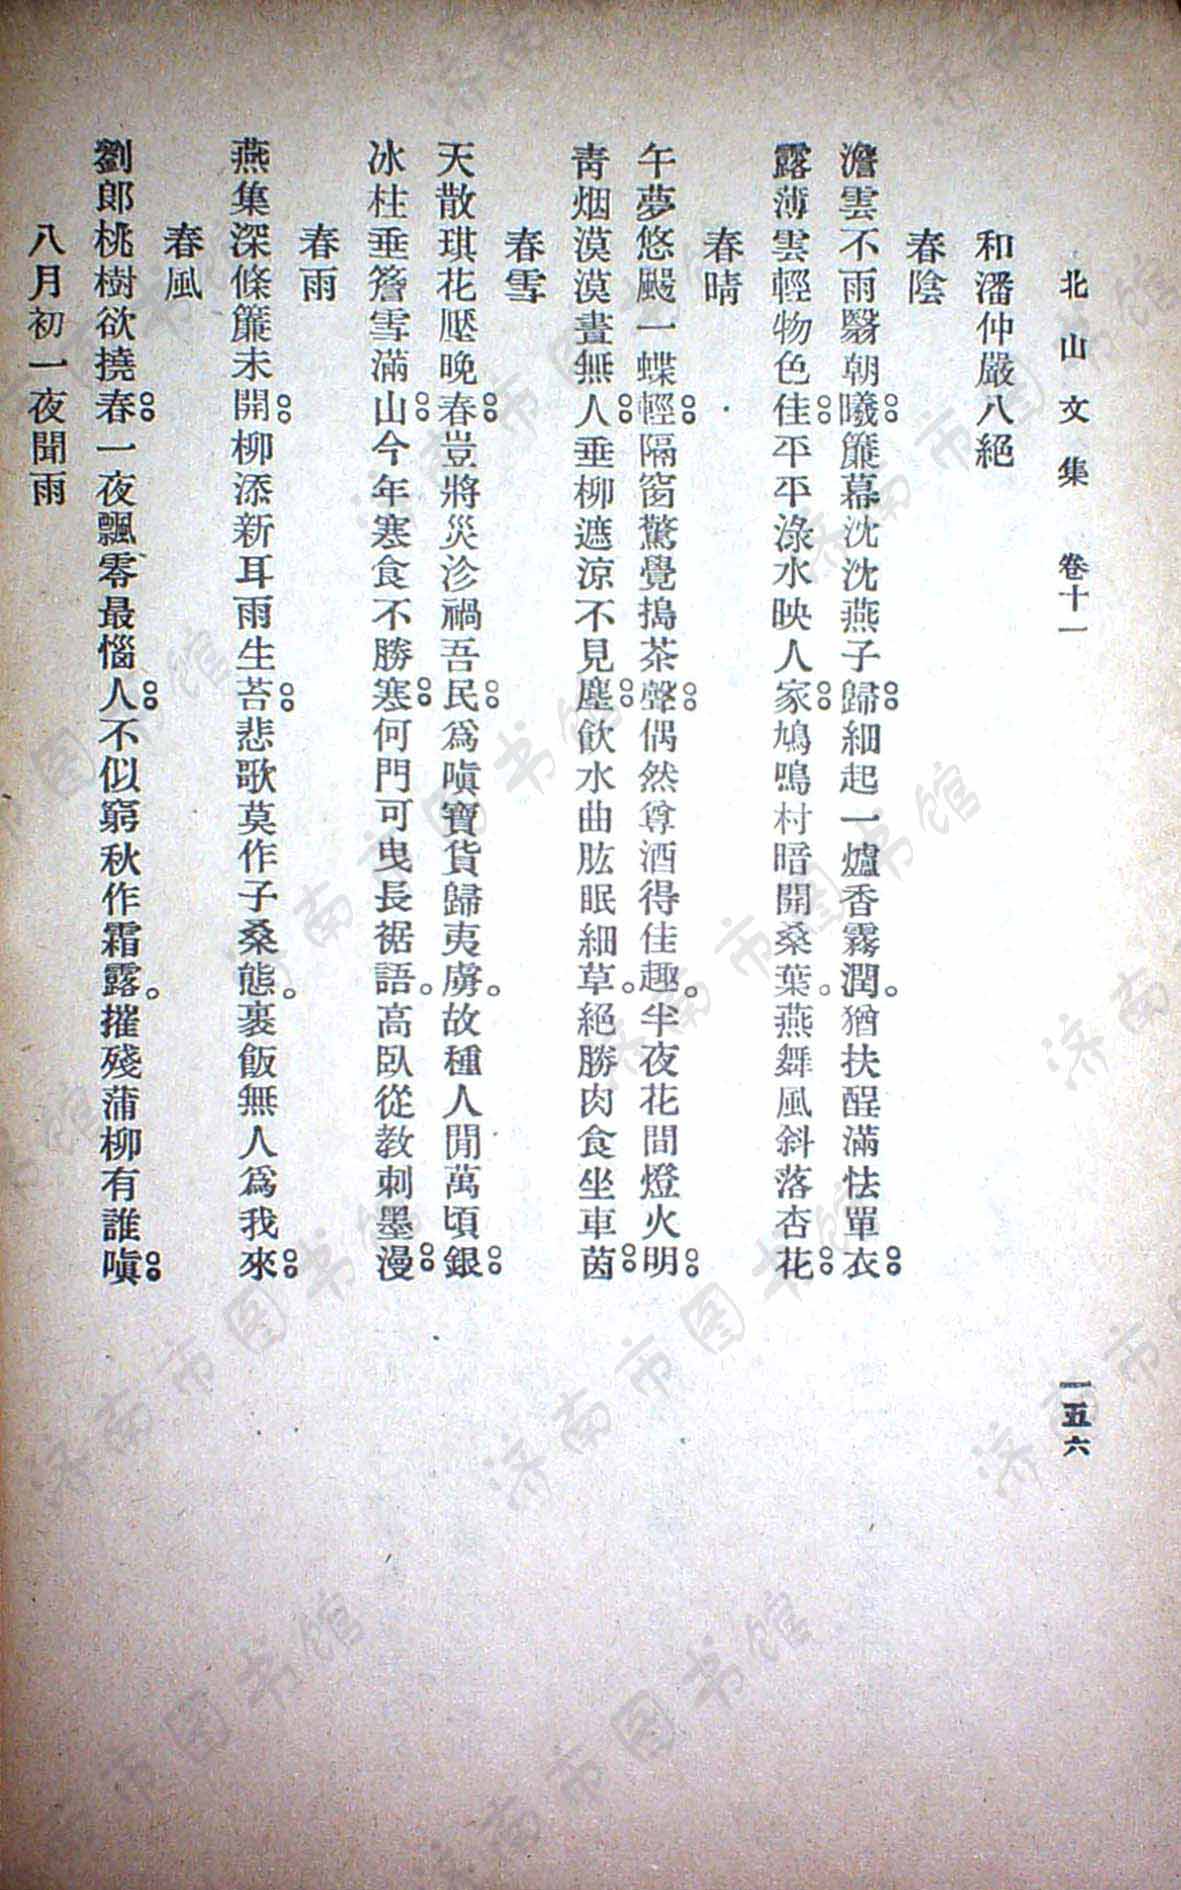 北山文集 卷十一 一五六
和潘仲嚴八絕
春陰
澹雲不雨翳朝曦簾幕沈沈燕子歸細起一爐香霧潤猶扶酲滿怯單衣
露薄雲輕物色佳平平淥水映人家鳩鳴村暗開桑葉燕舞風斜落杏花
春晴
午夢悠颺一蝶輕隔窗驚覺搗茶聲偶然尊酒得佳趣半夜花間燈火明
靑烟漠漠晝無人垂柳遮涼不見塵飲水曲肱眠細草絕勝肉食坐車茵
春雪
天散琪花壓晚春豈將災沴禍吾民爲嗔寶貨歸夷虜故種人閒萬頃銀
冰柱垂簷雪滿山今年寒食不勝寒何門可曳長裾語高臥從教刺墨漫
春雨
燕集深條簾未開柳添新耳雨生苔悲歌莫作子桑態裹飯無人爲我來
春風
劉郎桃樹欲撓春一夜飄零最惱人不似窮秋作霜露摧殘蒲柳有誰嗔
八月初一夜聞雨
济南市图书馆